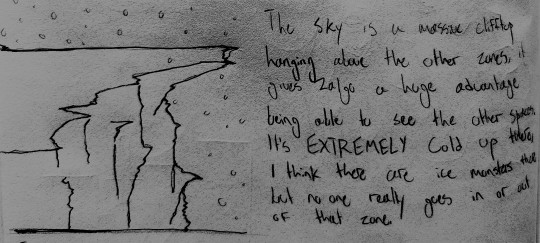 The sky is a massive clifftop
hanging above the other zones, it
gives Zalgo a huge advantage
being able to see the other spaces.
It's EXTREMELY cold up there,
I think there are ice monsters there
but no one really goes in or out
of that zone.